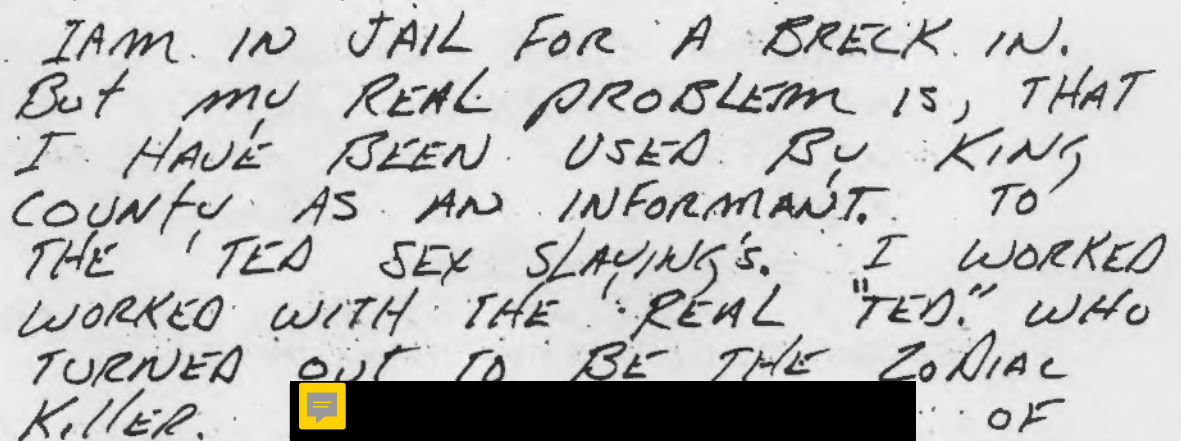 IAM IN JAIL FOR A BRECK IN.
BUT MY REAL PROBLEM IS, THAT
I HAVE BEEN USED BY KING
COUNTY AS AN INFORMANT. TO
THE 'TED SEX SLAYING'S. I WORKED
WORKED WITH THE REAL "TED." WHO
TURNED OUT TO BE THE ZODIAC
KILLER. OF